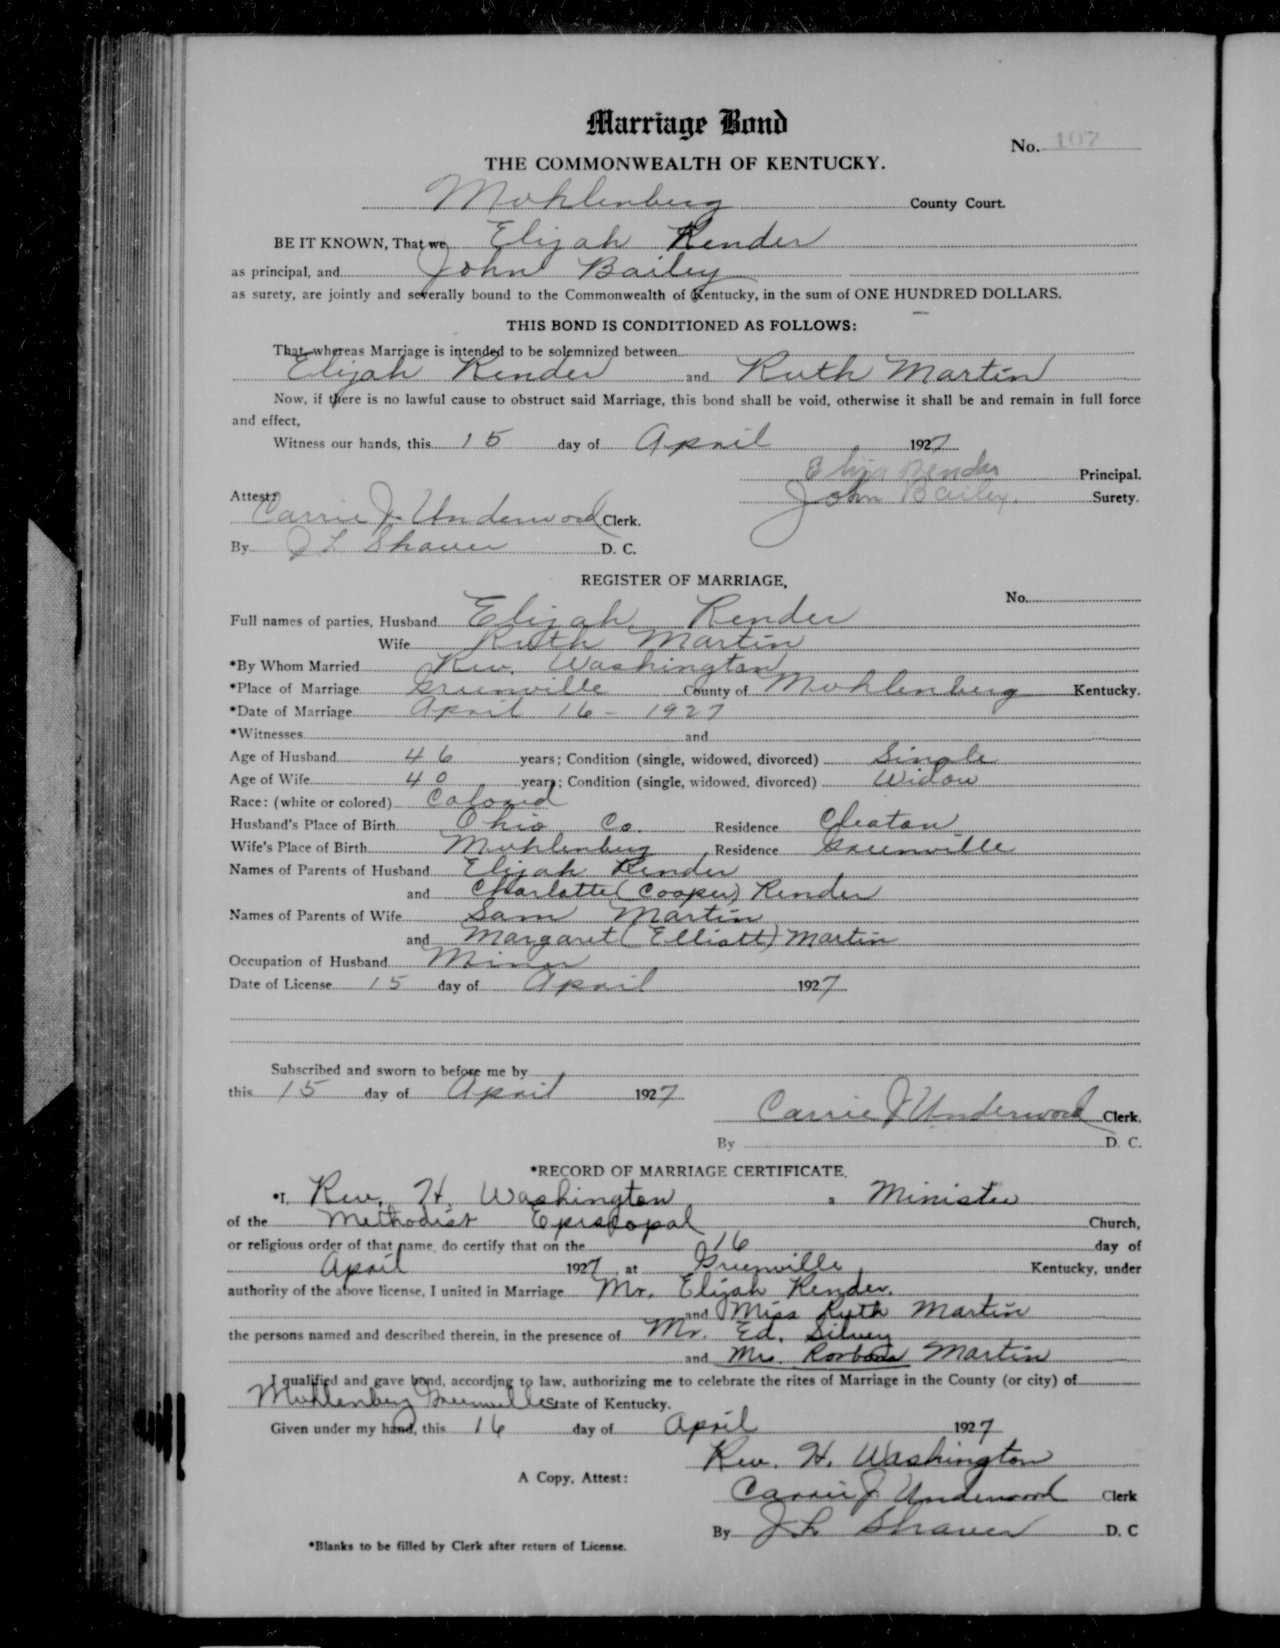 Marriage Bond
No. 107
THE COMMONWEALTH OF KENTUCKY.
Muhlenberg County Court.
BE IT KNOWN, That we Elijah Render
as principal, and John Bailey
as surety, are jointly and severally bound to the Commonwealth of Kentucky, in the sum of ONE HUNDRED DOLLARS.
THIS BOND IS CONDITIONED AS FOLLOWS:
That whereas Marriage is intended to be solemnized between
Elijah Render and Ruth Martin
Now, if there is no lawful cause to obstruct said Marriage, this bond shall be void, otherwise it shall be and remain in full force
and effect,
Witness our hands, this 15 day of April 1927
Elija Render Principal.
John Bailey. Surety.
Attest:
Carrie J. Underwood Clerk.
By J L Shaver D. C.
REGISTER OF MARRIAGE,
No.
Full names of parties, Husband Elijah Render
Wife Ruth Martin
*By Whom Married Rev. Washington
*Place of Marriage Greenville County of Muhlenberg Kentucky.
*Date of Marriage April 16 - 1927
*Witnesses and
Age of Husband 46 years; Condition (single, widowed, divorced) Single
Age of Wife 40 years; Condition (single, widowed, divorced) Widow
Race: (white or colored) Colored
Husband's Place of Birth Ohio Co. Residence Cleaton
Wife's Place of Birth Muhlenberg Residence Greenville
Names of Parents of Husband Elijah Render
and Charlotte (Cooper) Render
Names of Parents of Wife Sam Martin
and Margaret (Elliott) Martin
Occupation of Husband Miner
Date of License 15 day of April 1927
Subscribed and sworn to before me by
this 15 day of April 1927
Carrie J Underwood Clerk.
By D. C.
*RECORD OF MARRIAGE CERTIFICATE.
*I, Rev. H. Washington a Minister
of the Methodist Episcopal Church,
or religious order of that name, do certify that on the 16 day of
April 1927 at Greenville, Kentucky, under
authority of the above license, I united in Marriage Mr. Elijah Render.
and Miss Ruth Martin
the persons named and described therein, in the presence of Mr. Ed. Silvey
and Mrs. Martin
I qualified and gave bond, according to law, authorizing me to celebrate the rites of Marriage in the County (or city) of
Muhlenberg Greenville State of Kentucky.
Given under my hand, this 16 day of April 1927
Rev. H. Washington
A Copy, Attest:
Carrie J. Underwood Clerk
By J L Shaver D. C
*Blanks to be filled by Clerk after return of License.